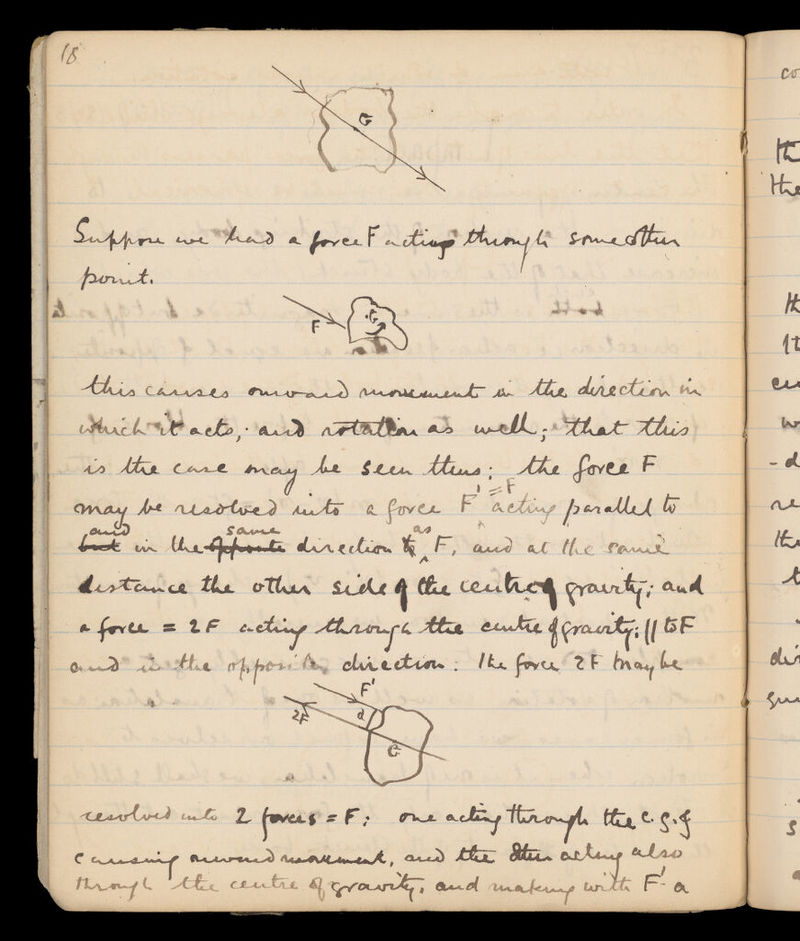 18
G
Suppose we had a force F acting through some other
point.
F
G
this causes onward movement in the direction in
which it acts, and rotation as well; that this
is the case may be seen thus: the force F
may be resolved into a force F' =F acting parallel to
and same as
but in the opposite direction to F, and at the same
distance the other side of the centre of gravity; and
a force = 2F acting through the centre of gravity; || to F
and in the opposite direction. The force 2F may be
F'
2F
d
G
resolved into 2 forces = F; one acting through the c. g. of
causing onward movement, and the other acting also
through the centre of gravity, and making with F' a
co
th
the
th
It
cu
w
-d
re
the
t
dir
gu
s
a